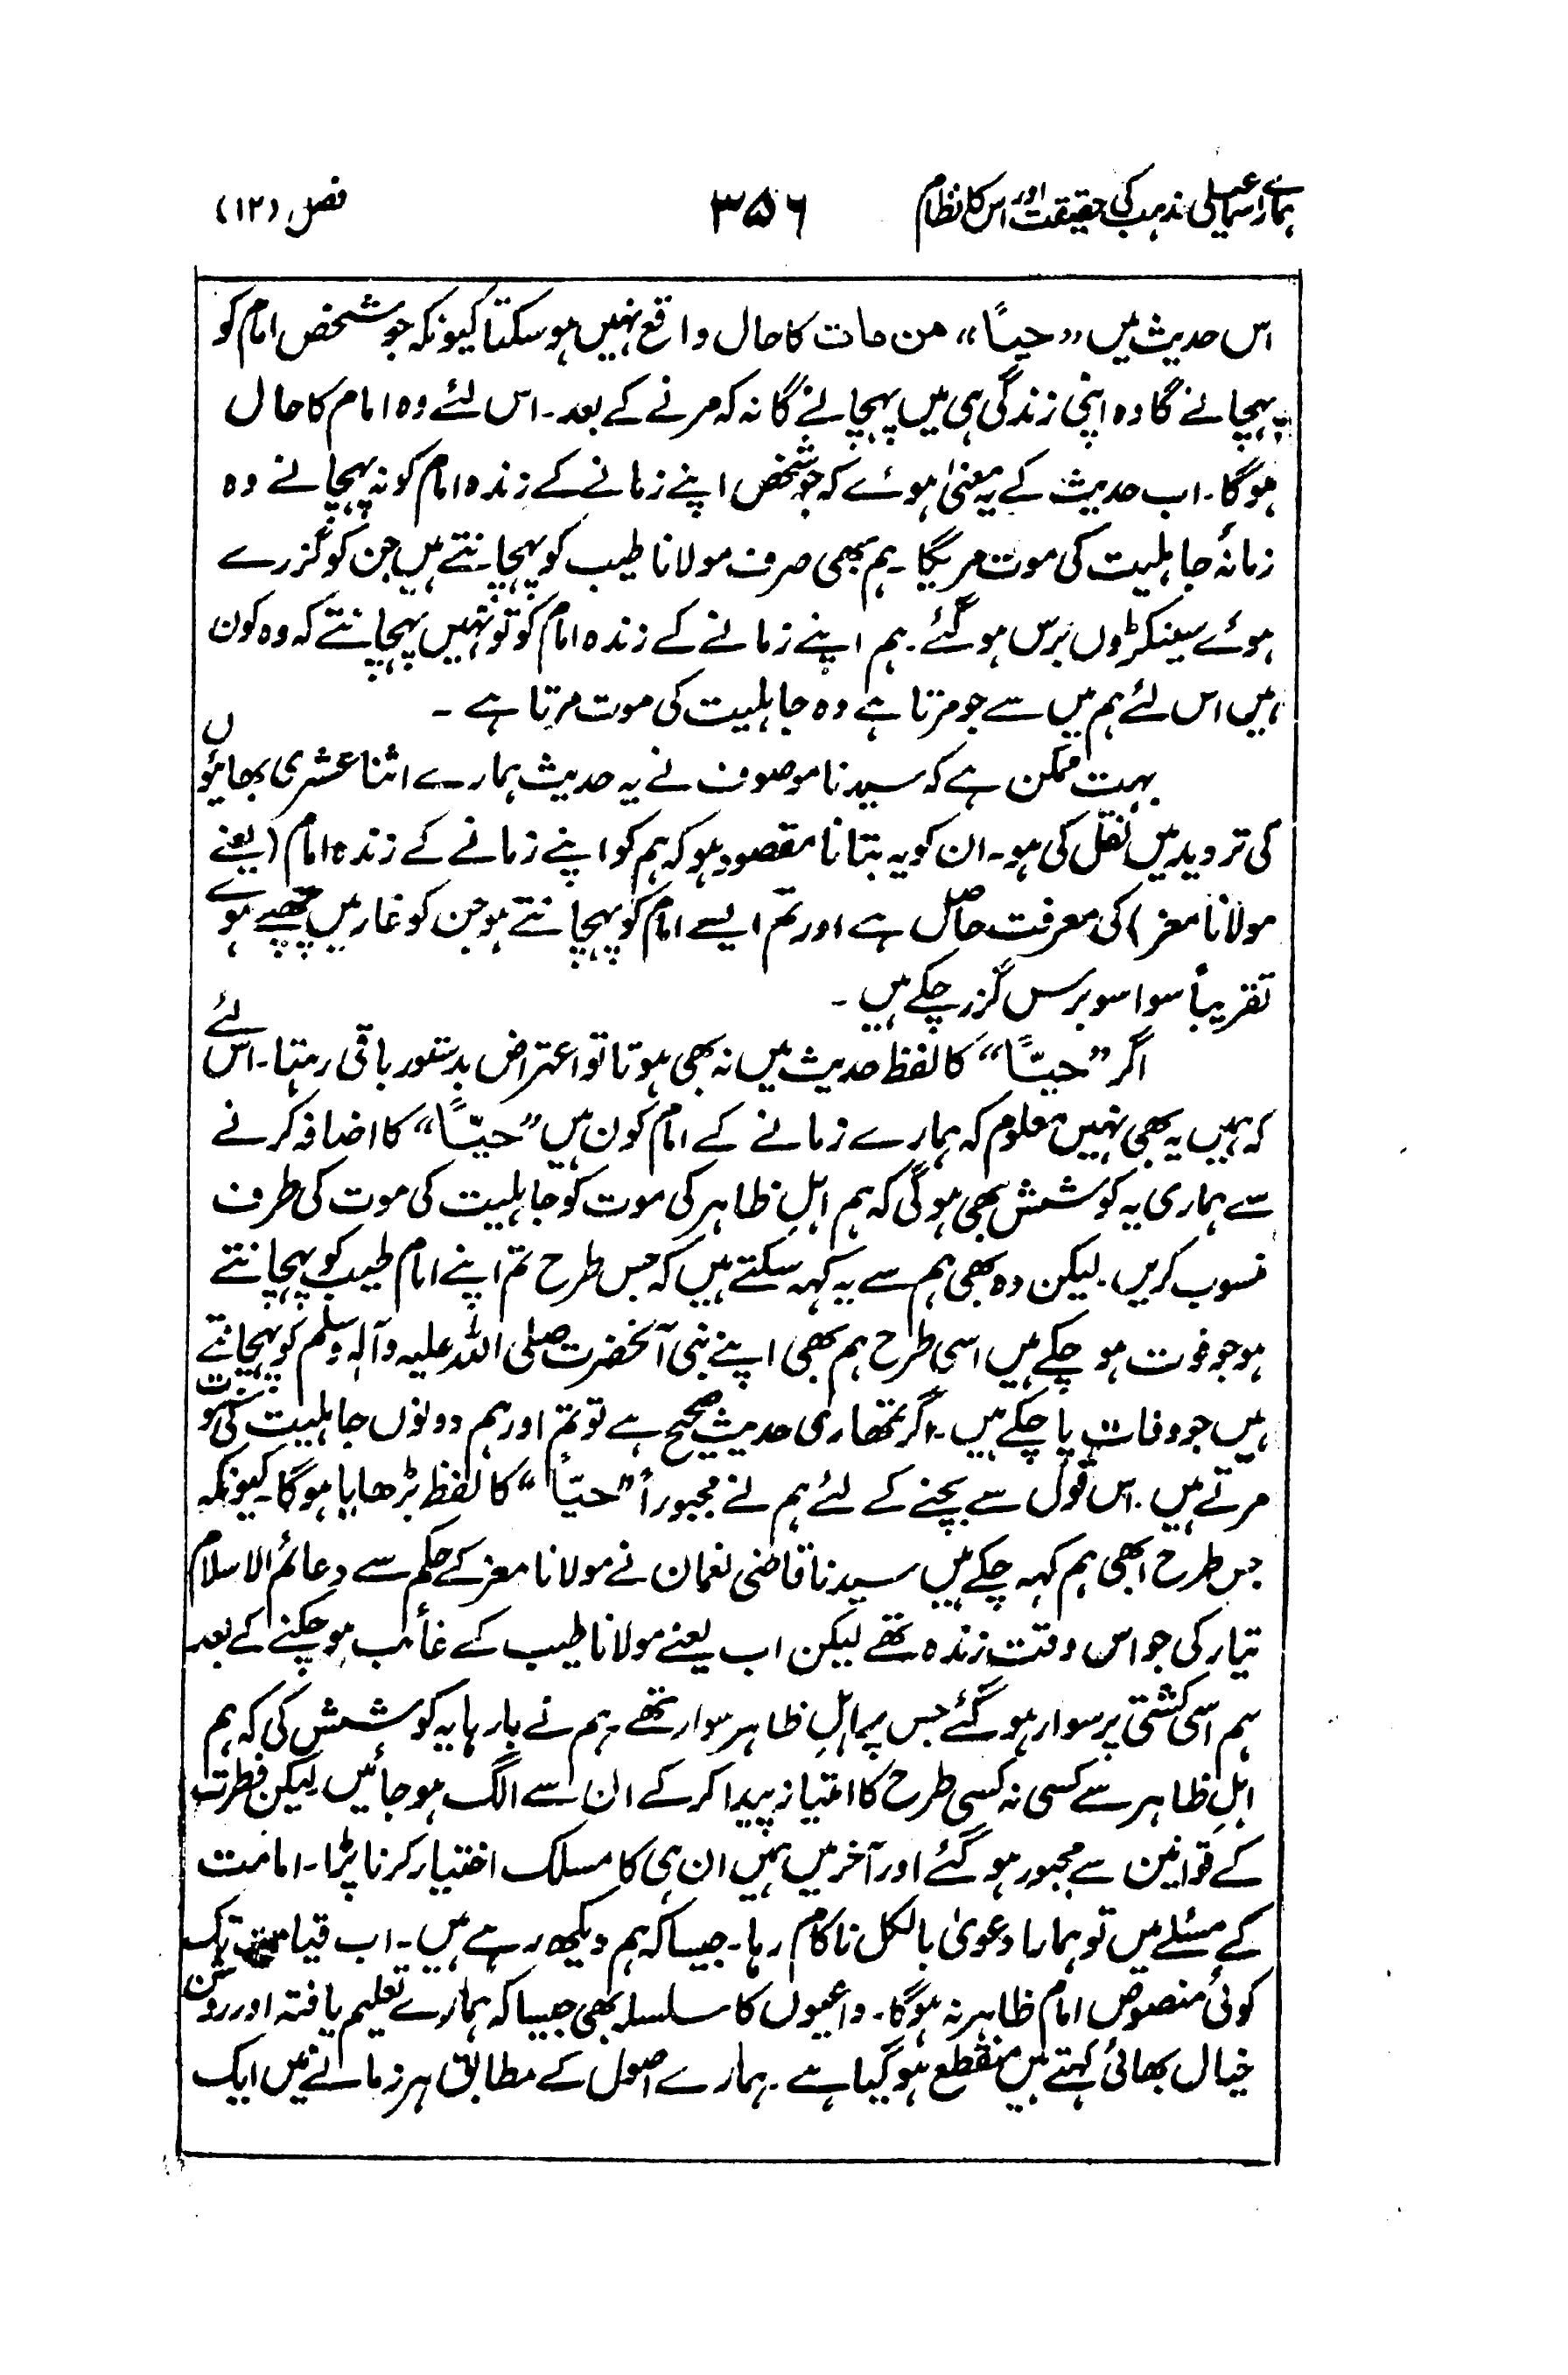 ہمارے اسماعیلی مذہب کی حقیقت اور اس کا نظام ۳۵۶ فصل (۱۲)
اس حدیث میں "حیًّا" من مات کا حال واقع نہیں ہو سکتا کیونکہ جو شخص امام کو
پہچانے گا وہ اپنی زندگی ہی میں پہچانے گا نہ کہ مرنے کے بعد۔ اس لئے وہ امام کا حال
ہوگا۔ اب حدیث کے یہ معنیٰ ہوئے کہ جو شخص اپنے زمانے کے زندہ امام کو نہ پہچانے وہ
زمانۂ جاہلیت کی موت مریگا۔ ہم بھی صرف مولانا طیب کو پہچانتے ہیں جن کو گزرے
ہوئے سینکڑوں برس ہو گئے۔ ہم اپنے زمانے کے زندہ امام کو تو نہیں پہچانتے کہ وہ کون
ہیں اس لئے ہم میں سے جو مرتا ہے وہ جاہلیت کی موت مرتا ہے ۔
بہت ممکن ہے کہ سیدنا موصوف نے یہ حدیث ہمارے اثنا عشری بھائیوں
کی تردید میں نقل کی ہو۔ ان کو یہ بتانا مقصود ہو کہ ہم کو اپنے زمانے کے زندہ امام (یعنے
مولانا معز) کی معرفت حاصل ہے اور تم ایسے امام کو پہچانتے ہو جن کو غار میں چھپے ہوے
تقریباً سوا سو برس گزر چکے ہیں ۔
اگر "حیّاً" کا لفظ حدیث میں نہ بھی ہوتا تو اعتراض بدستور باقی رہتا۔ اس لئے
کہ ہمیں یہ بھی نہیں معلوم کہ ہمارے زمانے کے امام کون ہیں "حیّاً" کا اضافہ کرنے
سے ہماری یہ کوشش بھی ہوگی کہ ہم اہلِ ظاہر کی موت کو جاہلیت کی موت کی طرف
منسوب کریں۔ لیکن وہ بھی ہم سے یہ کہہ سکتے ہیں کہ جس طرح تم اپنے امام طیب کو پہچانتے
ہو جو فوت ہو چکے ہیں اسی طرح ہم بھی اپنے نبی آنحضرت صلی اللہ علیہ وآلہ وسلم کو پہچانتے
ہیں جو وفات پا چکے ہیں۔ اگر تمھاری حدیث صحیح ہے تو تم اور ہم دونوں جاہلیت کی موت
مرتے ہیں۔ اس قول سے بچنے کے لئے ہم نے مجبوراً "حیّاً" کا لفظ بڑھایا ہوگا۔ کیونکہ
جس طرح ابھی ہم کہہ چکے ہیں سیدنا قاضی نعمان نے مولانا معز کے حکم سے دعائم الاسلام
تیار کی جو اس وقت زندہ تھے لیکن اب یعنے مولانا طیب کے غائب ہو چکنے کے بعد
ہم اسی کشتی پر سوار ہو گئے جس پر اہلِ ظاہر سوار تھے۔ ہم نے بارہا یہ کوشش کی کہ ہم
اہلِ ظاہر سے کسی نہ کسی طرح کا امتیاز پیدا کر کے ان سے الگ ہو جائیں لیکن فطرت
کے قوانین سے مجبور ہو گئے اور آخر میں ہمیں ان ہی کا مسلک اختیار کرنا پڑا۔ امامت
کے مسئلے میں تو ہمارا دعویٰ بالکل ناکام رہا۔ جیسا کہ ہم دیکھ رہے ہیں۔ اب قیامت تک
کوئی منصوص امام ظاہر نہ ہوگا۔ داعیوں کا سلسلہ بھی جیسا کہ ہمارے تعلیم یافتہ اور روشن
خیال بھائی کہتے ہیں منقطع ہو گیا ہے۔ ہمارے اصول کے مطابق ہر زمانے میں ایک